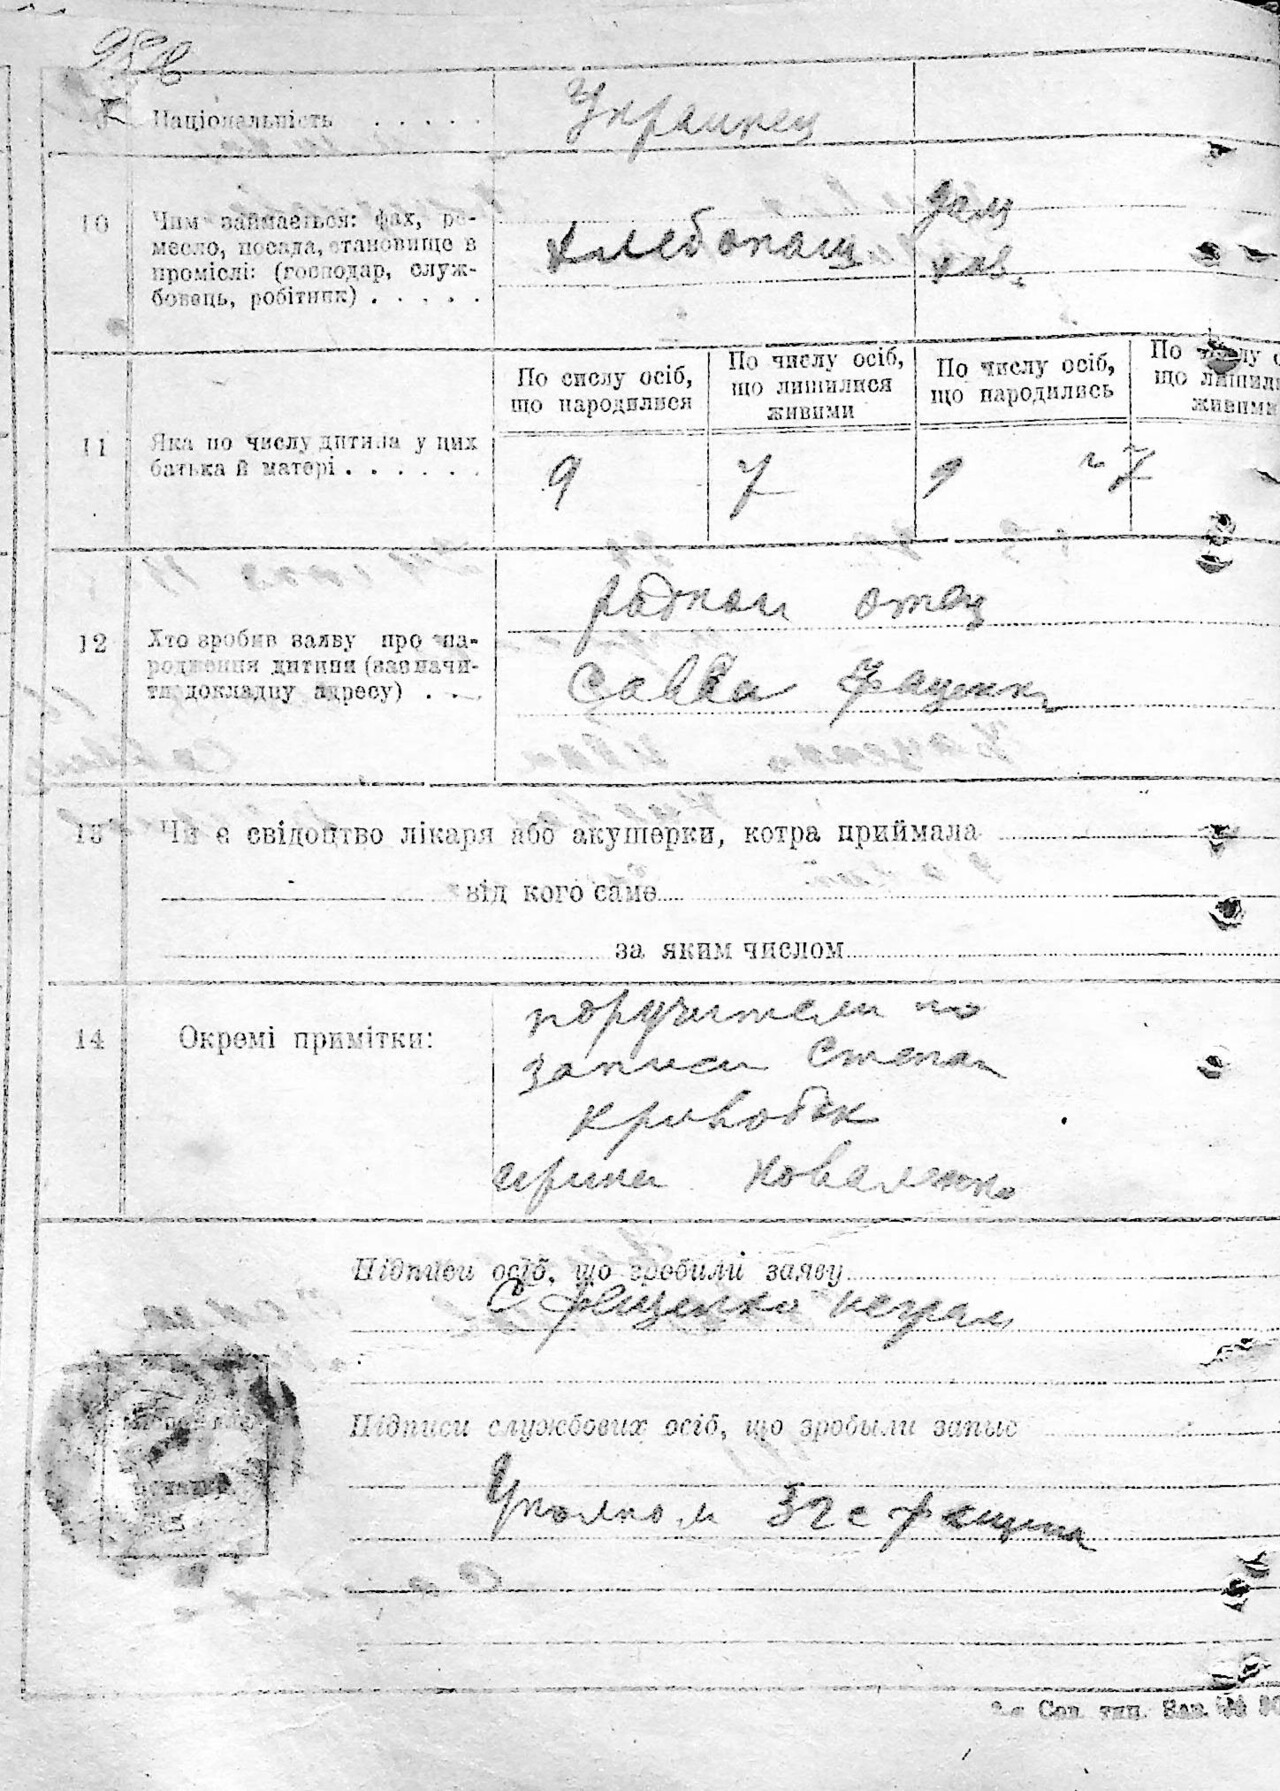 Національність . . . . .
Украинец
10
Чим займається: фах, ре-
месло, посада, становище в
проміслі: (господар, служ-
бовець, робітник) . . . . .
хлебопаш
дом
хаз.
По сислу осіб,
що народилися
По числу осіб,
що лишилися
живими
По числу осіб,
що народились
По числу о
що лишил
живими
11
Яка по числу дитина у цих
батька й матері . . . . . .
9 7 9 7
12
Хто зробив заяву про на-
родження дитини (зазначи-
ти докладну адресу) . . .
родной отец
Савва Фащенк
13
Чи є свідоцтво лікаря або акушерки, котра приймала
від кого саме
за яким числом
14
Окремі примітки:
поручители по
записи Степан
Кривобок
ирина Коваленко
Підписи осіб, що зробили заяву
С Фащенко неграм
Підписи службових осіб, що зробыли запыс
Уполном
Сов. тип. Зак.